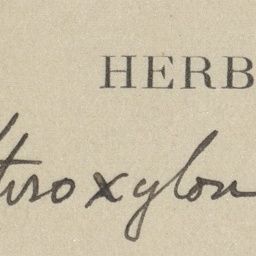 HERB
throxylon